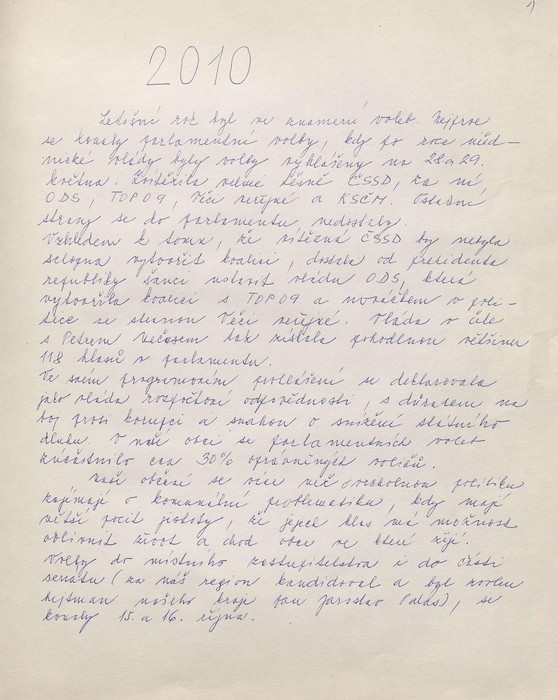 1)
2010
Letošní rok byl ve znamení voleb. Nejprve
se konaly parlamentní volby, kdy po roce úřed-
nické vlády byly volby vyhlášeny na 28. a 29.
května. Zvítězila velmi těsně ČSSD, za ní
ODS, TOP 09, Věci veřejné a KSČM. Ostatní
strany se do parlamentu nedostaly.
Vzhledem k tomu, že vítězná ČSSD by nebyla
schopna vytvořit koalici, dostala od prezidenta
republiky šanci ustavit vládu ODS, která
vytvořila koalici s TOP 09 a nováčkem v poli-
tice se stranou Věci veřejné. Vláda v čele
s Petrem Nečasem tak získala pohodlnou většinu
118 hlasů v parlamentu.
Ve svém programovém prohlášení se deklarovala
jako vláda rozpočtové odpovědnosti, s důrazem na
boj proti korupci a snahou o snížení státního
dluhu. V naší obci se parlamentních voleb
zúčastnilo cca 30% oprávněných voličů.
Naši občané se více než o vrcholnou politiku
zajímají o komunální problematiku, kdy mají
větší pocit jistoty, že jejich hlas má možnost
ovlivnit život a chod obce ve které žijí.
Volby do místního zastupitelstva i do části
senátu (za náš region kandidoval a byl zvolen
hejtman našeho kraje pan Jaroslav Palas), se
konaly 15. a 16. října.